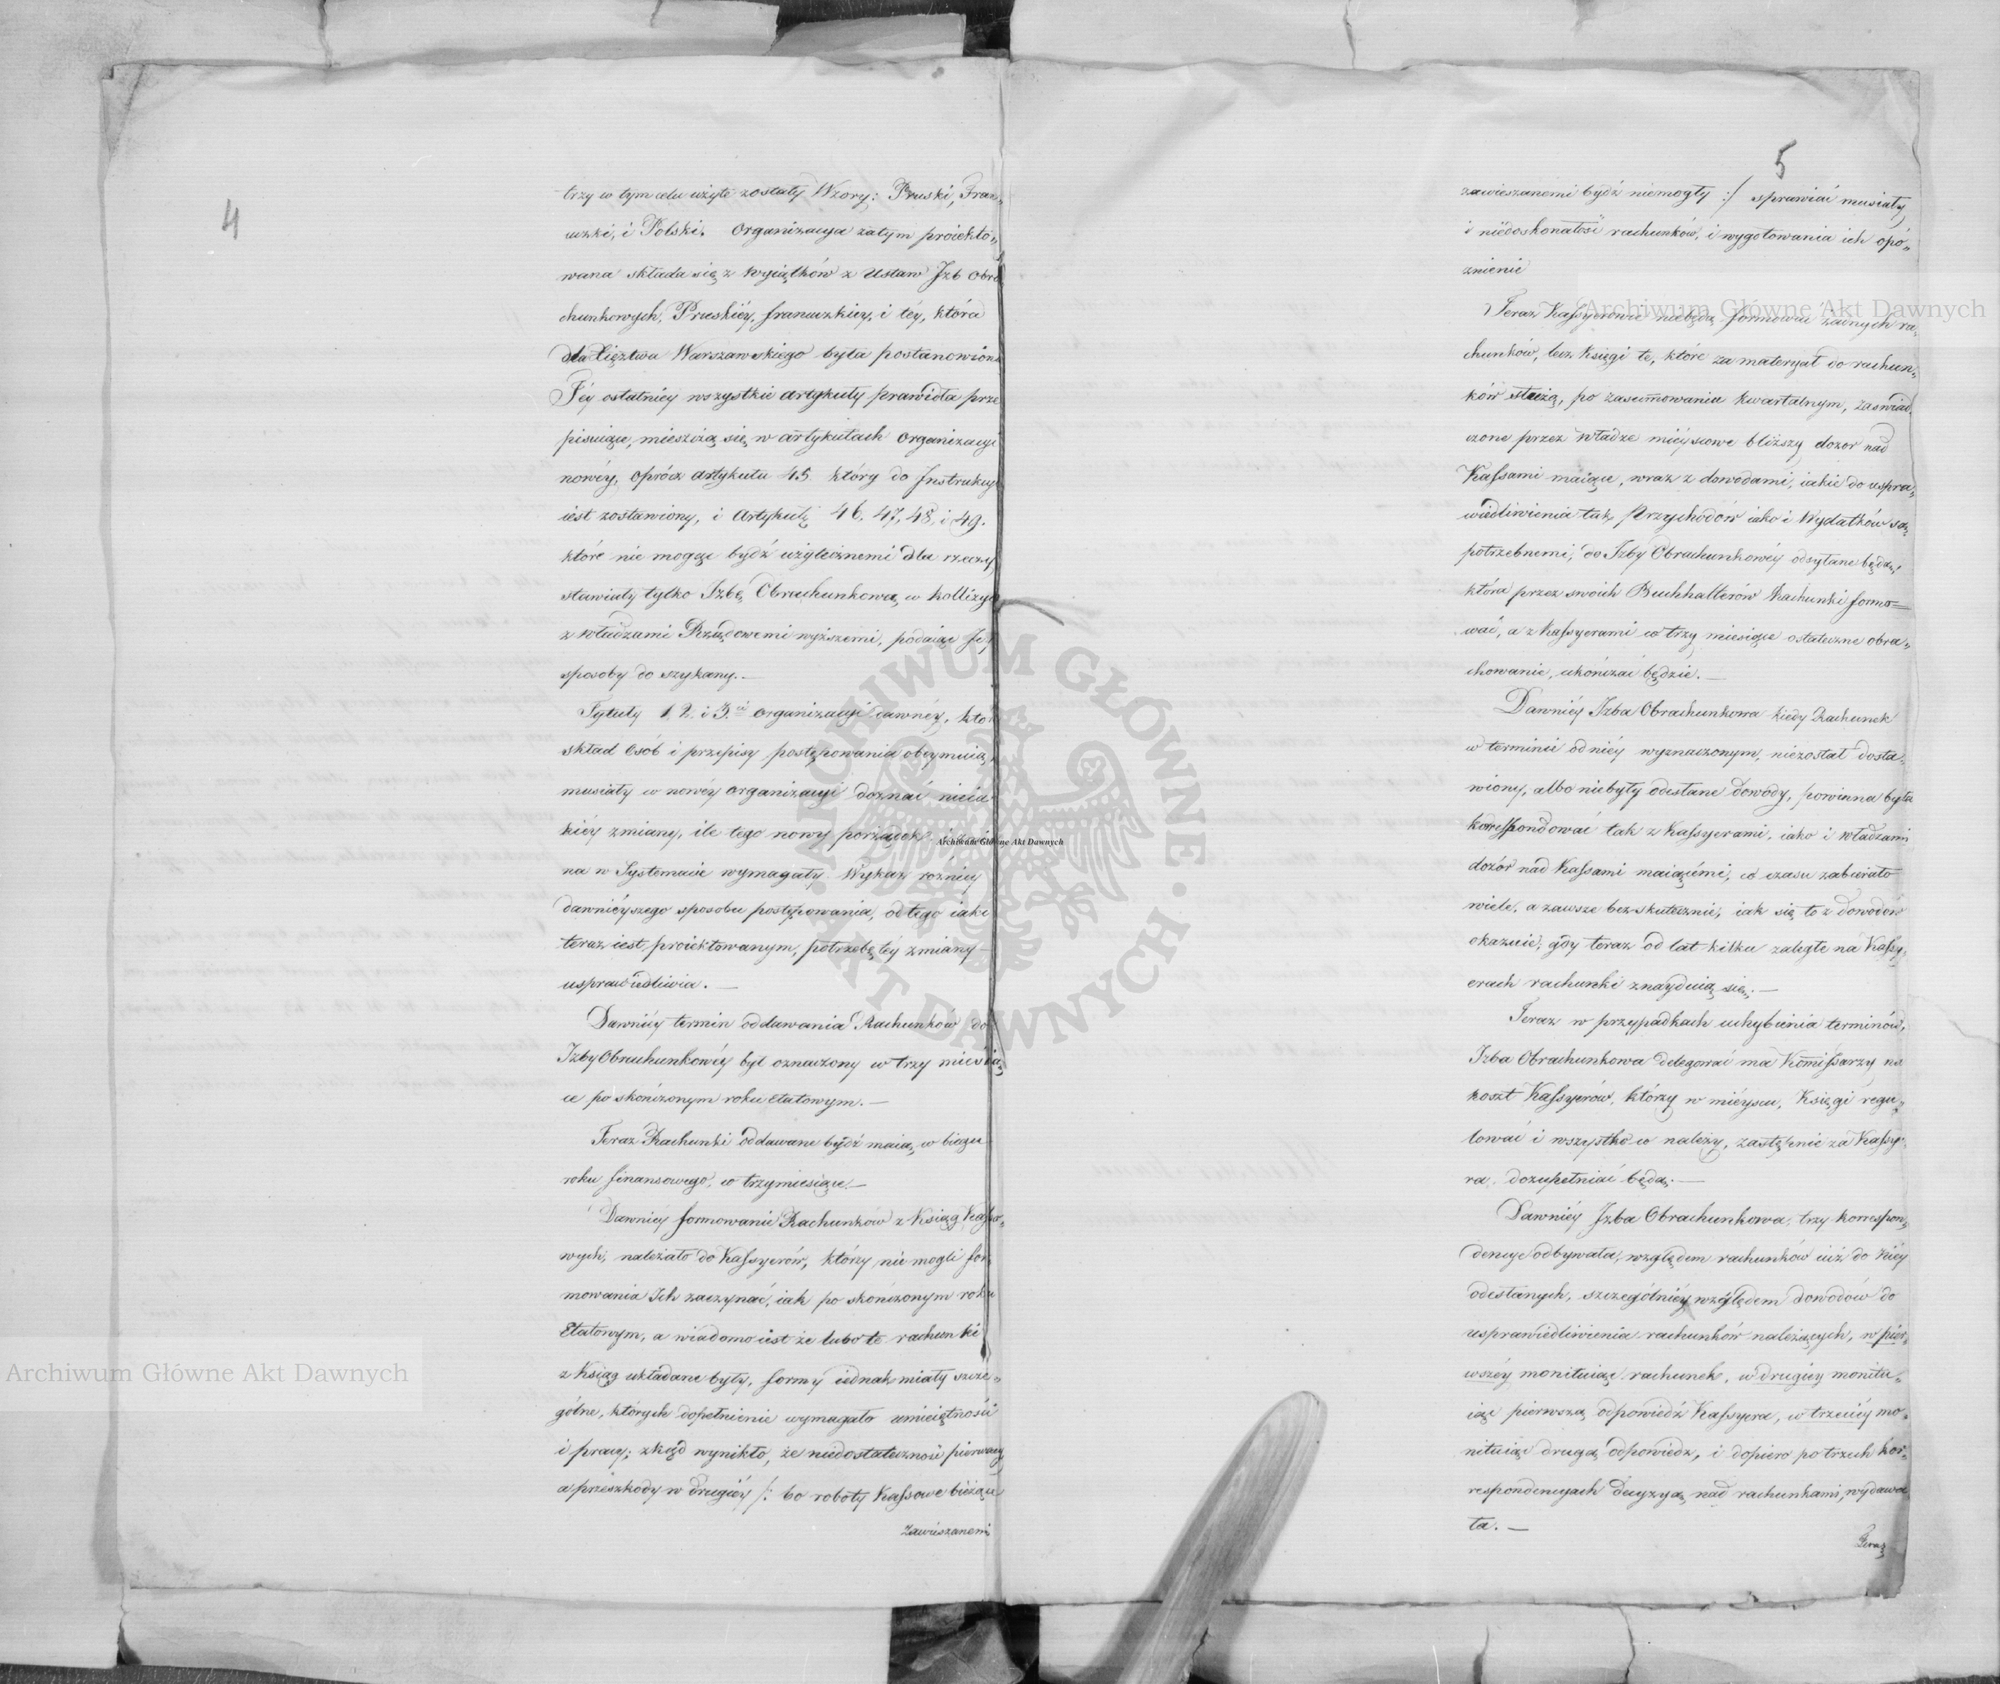 4
trzy w tym celu użyte zostały Wzory: Pruski, Fran„
cuzki, i Polski. Organizacya zatym proiekto„
wana składa się z wyciątków z Ustaw Jzb Obra
chunkowych, Pruskiéy, francuzkiey, i téy, która
dla Xięztwa Warszawskiego była postanowiona
Téy ostatniéy wszystkie artykuły prawidła prze
pisuiące, mieszczą się w artykułach organizacyi
nowéy, oprócz artykułu 45. który do Jnstrukcyi
iest zostawiony, i Artykuły 46, 47, 48, i 49.
które nie mogąc bydź użytecznemi dla rzeczy,
stawiały tylko Jzbę Obrachunkową w kollizyi
z władzami Rządowemi wyższemi, podaiąc Jey
sposoby do szykany. —
Tytuły 1, 2. i 3.ci organizacyi dawnéy, które
skład Osób i przepisy postępowania obeymuią,
musiały w nowéy organizacyi doznać nieia
kiéy zmiany, ile tego nowy porządek
na w Systemacie wymagały. Wykaz róznicy
dawniéyszego sposobu postępowania, od tego iaki
teraz iest proiektowanym, potrzebę téy zmiany
usprawiedliwia. —
Dawniéy termin oddawania Rachunków do
Jzby Obrachunkowéy był oznaczony w trzy miesią„
ce po skończonym roku Etatowym. —
Teraz Rachunki oddawane bydź maią w biegu
roku finansowego, w trzymiesiące —
Dawniéy formowanie Rachunków z Ksiąg Kasso„
wych, należało do Kassyerów, którzy nie mogli for„
mowania Jch zaczynać, iak po skończonym roku
Etatowym, a wiadomo iest że lubo te rachunki
z Ksiąg układane były, formy iednak miały szcze„
gólne, których dopełnienie wymagało umieiętności
i pracy; zkąd wynikło, że niedostateczność pierwszey
a przeszkody w drugiéy /: bo roboty Kassowe bieżące
zawieszanemi
5
zawieszanemi bydź niemogły :/ sprawiać musiały
i niedoskonałość rachunków, i wygotowania ich opó„
znienie
Teraz Kassyerowie niebędą formować żadnych ra„
chunków, lecz Księgi te, które za materyał do rachun„
ków służą, po zasummowaniu kwartalnym, zaświad„
czone przez władze mieyscowe bliższy dozor nad
Kassami maiące, wraz z dowodami, iakie do uspra„
wiedliwienia tak Przychodów iako i Wydatków są
potrzebnemi, do Jzby Obrachunkowéy odsyłane będą,
która przez swoich Buchhalterów Rachunki formo=
wać, a z Kassyerami w trzy miesiące ostateczne obra„
chowanie, ukończać będzie. —
Dawniéy Jzba Obrachunkowa kiedy Rachunek
w terminie od niéy wyznaczonym, niezostał dosta„
wiony, albo niebyły odesłane dowody, powinna była
korrespondować tak z Kassyerami, iako i władzami
dozór nad Kassami maiącémi, co czasu zabierało
wiele, a zawsze bez-skutecznie, iak się to z dowodów
okazuie, gdy teraz od lat kilku zaległe na Kassy„
erach rachunki znayduią się. —
Teraz w przypadkach uchybienia terminów,
Jzba Obrachunkowa delegować ma Kommissarzy na
koszt Kassyerów, którzy w miéyscu, Księgi regu„
lować i wszystko co należy, zastępnie za Kassye„
ra, dozupełniać będą. —
Dawniéy Jzba Obrachunkowa, trzy korrespon„
dencye odbywała, względem rachunków iuż do niéy
odesłanych, szczególniéy względem dowodów do
usprawiedliwienia rachunków należących, w pier„
wszéy monituiąc rachunek, w drugiéy monitu„
iąc pierwszą odpowiedź Kassyera, w trzeciéy mo„
nituiąc drugą odpowiedz, i dopiero po trzech kor„
respondencyach decyzyą nad rachunkami, wydawa
ła. —
Teraz
Archiwum Główne Akt Dawnych
Archiwum Główne Akt Dawnych
Archiwum Główne Akt Dawnych
ARCHIWUM GŁÓWNE · AKT DAWNYCH ·